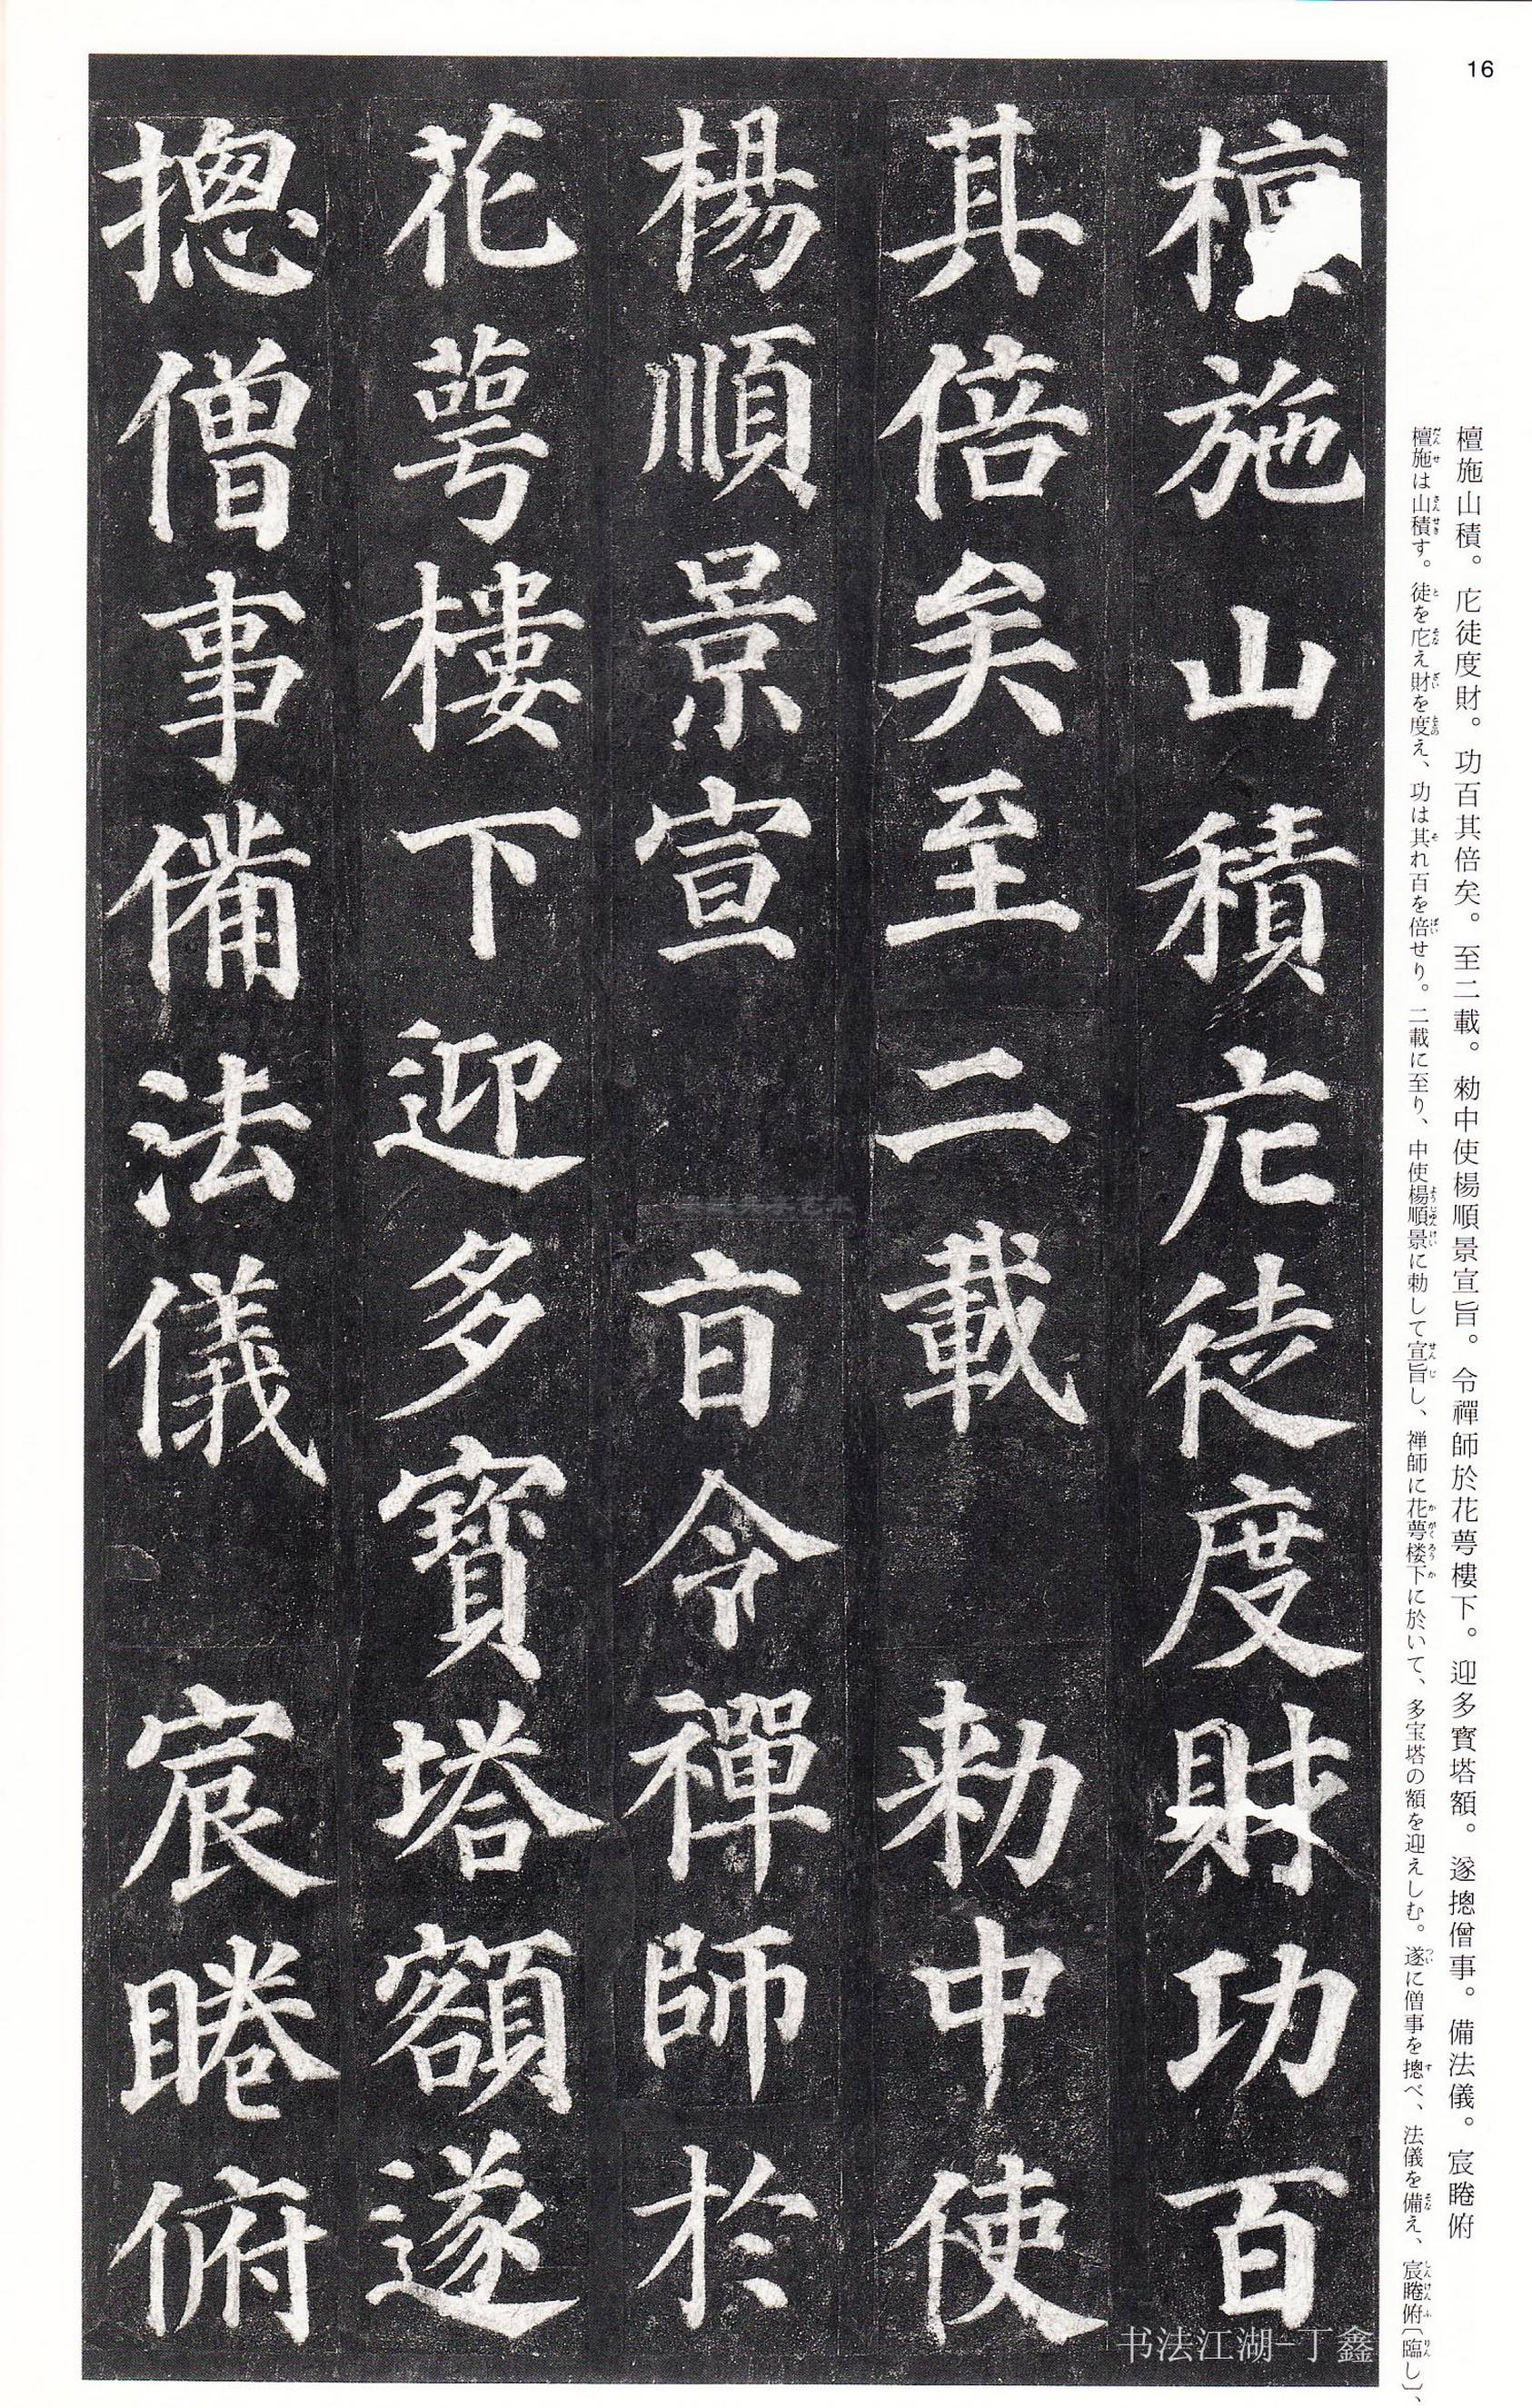 16
檀施山積。庀徒度財。功百其倍矣。至二載。勑中使楊順景宣旨。令禪師於花萼樓下。迎多寳塔額。遂摠僧事。備法儀。宸睠俯
檀施は山積す。徒を庀え財を度え、功は其れ百を倍せり。二載に至り、中使楊順景に勅して宣旨し、禅師に花萼楼下に於いて、多宝塔の額を迎えしむ。遂に僧事を摠べ、法儀を備え、宸睠俯〔臨し〕、
檀施山積庀徒度財功百
其倍矣至二載勑中使
楊順景宣旨令禪師於
花萼樓下迎多寳塔額遂
摠僧事備法儀宸睠俯
书法江湖-丁鑫